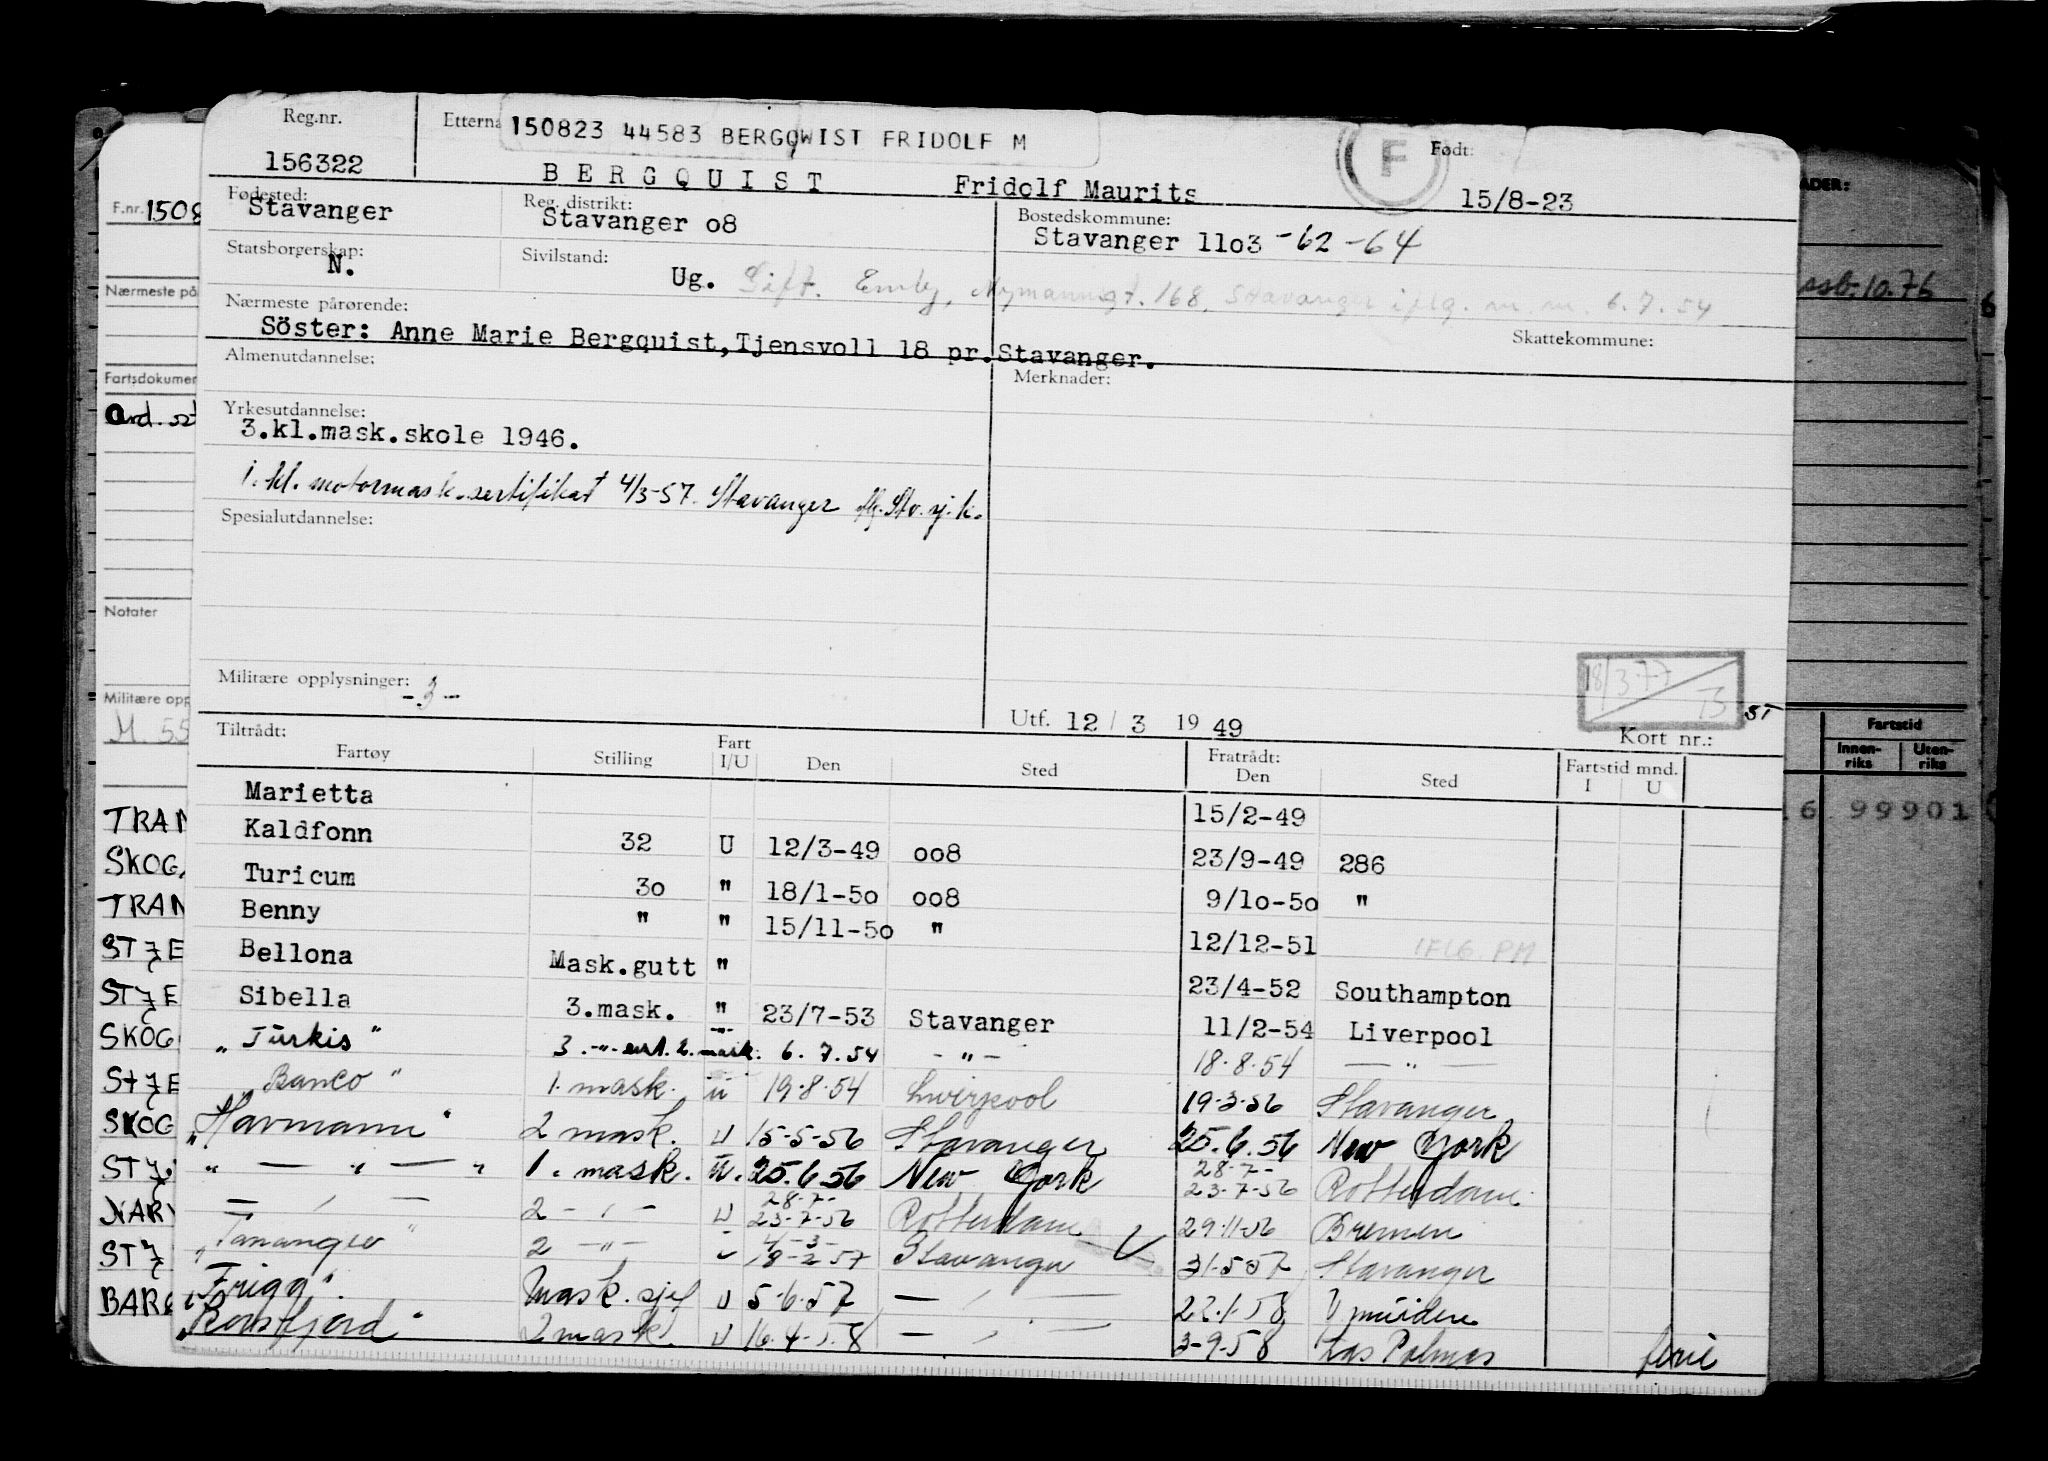 Reg.nr. Etterna 150823 44583 BERGQWIST FRIDOLF M F Født:
156322 BERGQUIST Fridolf Maurits 15/8-23
Fødested: Reg. distrikt: Bostedskommune:
Stavanger Stavanger o8 Stavanger 11o3 -62 -64
Statsborgerskap: Sivilstand:
N. Ug. Gift. Emly, Nymannsgt. 168, Stavanger iflg. m.m. 6.7.54
Nærmeste pårørende: Skattekommune:
Söster: Anne Marie Bergquist, Tjensvoll 18 pr. Stavanger.
Almenutdannelse: Merknader:
Yrkesutdannelse:
3.kl.mask.skole 1946.
1. kl. motormask.sertifikat 4/3-57. Stavanger flg. Stv. sj.k.
Spesialutdannelse:
Militære opplysninger: -3-
18/3 77
ST
Utf. 12 / 3 19 49 Kort nr.:
Tiltrådt: Fratrådt:
Fartøy Stilling Fart I/U Den Sted Den Sted Fartstid mnd. I U
Marietta 15/2-49
Kaldfonn 32 U 12/3-49 oo8 23/9-49 286
Turicum 3o " 18/1-5o oo8 9/1o-5o "
Benny " " 15/11-5o " 12/12-51 IFLG. PM
Bellona Mask.gutt " 23/4-52 Southampton
Sibella 3.mask. " 23/7-53 Stavanger 11/2-54 Liverpool
"Türkis" 3. -"- sert. 2. mask. 6.7.54 - " - 18.8.54 - " -
"Banco" 1. mask. ü 19.8.54 Liverpool 19-3-56 Stavanger
"Havmann" 2 mask. U 15-5-56 Stavanger 25.6.56 New York
" — " — " 1. mask. U. 25.6.56 New York 28-7- 23-7-56 Rotterdam
— " — 2 - " - U 28-7- 23-7-56 Rotterdam 29-11-56 Bremen
"Tananger" 2 -"- U 4-3- 18-2-57 Stavanger 31-5-57 Stavanger
"Frigg". Mask. sjef U 5-6-57 — " — 22-1-58 Ymuiden
2 mask. U 16.4-58 — " — 3-9-58 Las Palmas ferie
F.nr. 1508
Nærmeste på
Fartsdokumen
Ord. st
Notater
Militære opp
M. 55
TRAN
SKOG
TRAN
STJE
STJE
SKOG
STJE
SKOG
STJ
NARV
STJ
BAR
ADER:
ssb. 10.76
6
Fartstid
Innen-riks Uten-riks
16 99901